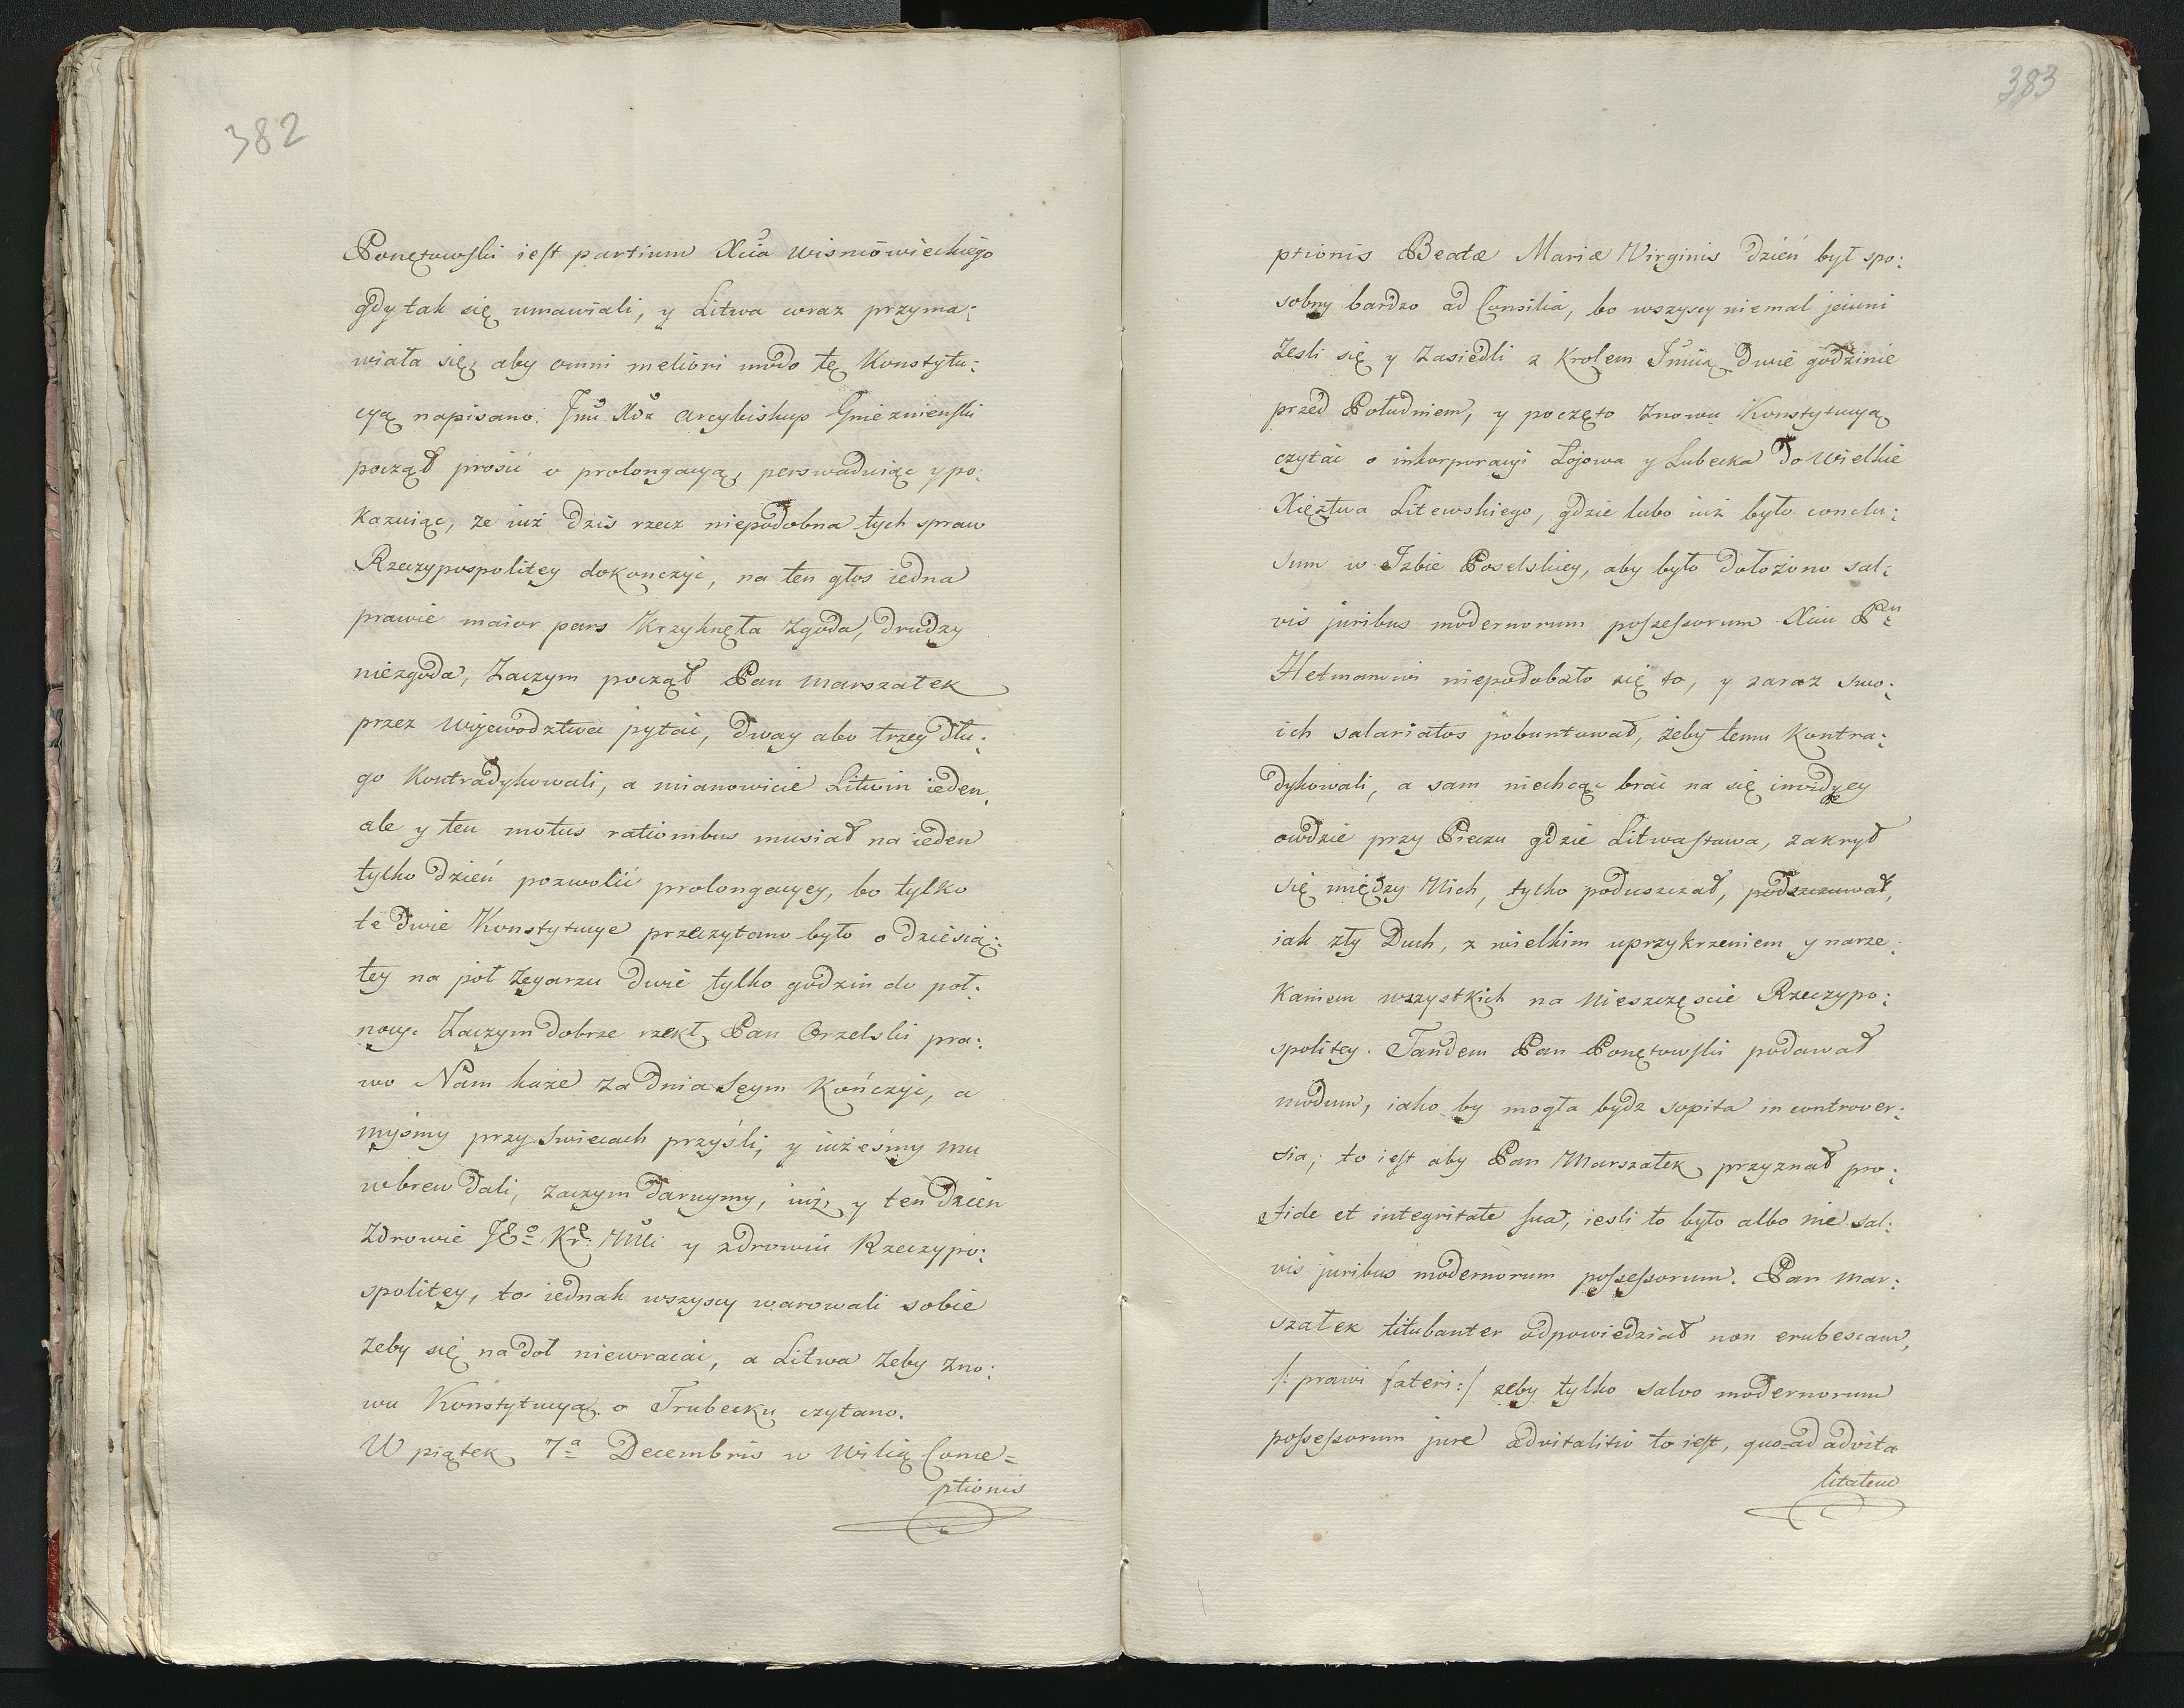 382
Ponętowski iest partium Xcia Wisniowieckiego
gdy tak się umawiali, y Litwa wraz przyma:
wiała się, aby omni meliori modo tę Konstytu:
cyą napisano. Jmć Xdz Arcybiskup Gnieznienski
począł prosić o prolongacyą, perswaduiąc y po:
kazuiąc, że iuż dziś rzecz niepodobna tych spraw
Rzeczypospolitey dokonczyć, na ten głos iedna
prawie maior pars Krzyknęła zgoda, drudzy
niezgoda, Zaczym począł Pan Marszałek
przez Wojewodztwa pytać, dway abo trzey dłu:
go Kontradykowali, a mianowicie Litwin ieden,
ale y ten motus rationibus musiał na ieden
tylko dzień pozwolić prolongacyey, bo tylko
te dwie Konstytucye przeczytano było o dziesią:
tey na poł Zegarzu dwie tylko godzin do poł:
nocy. Zaczym dobrze rzekł Pan Orzelski pra:
wo Nam każe za dnia Seym Kończyć, a
myśmy przy Swiecach przyśli, y iużeśmy mu
wbrew dali, zaczym daruymy, iuż y ten dzień
Zdrowie JEº Kr: Mći y zdrowiu Rzeczypo:
spolitey, to iednak wszyscy warowali sobie
żeby się na doł niewracać, a Litwa żeby zno:
wu Konstytucyą o Trubecku czytano.
W piątek 7ª Decembris w Wilią Conce=
ptionis
383
ptionis Beatæ Mariæ Virginis dzień był spo:
sobny bardzo ad Consilia, bo wszyscy niemal jeiuni
Zesli się y Zasiedli z Krolem Jmcią dwie godzinie
przed Południem, y poczęto znowu Konstytucyą
czytać o inkorporacyi Łojowa y Lubecka do Wielkie
Xięztwa Litewskiego, gdzie lubo iuż było conclu:
sum w Izbie Poselskiey, aby było dołożono sal:
vis juribus modernorum possessorum Xciu Pnu
Hetmanowi niepodobało się to, y zaraz swo:
ich salariatos pobuntował, żeby temu Kontra:
dykowali, a sam niechcąc brać na się invidyey
owdzie przy Piecu gdzie Litwa stawa, zakrył
się między Nich, tylko poduszczał, podszczuwał,
iak zły Duch, z wielkim uprzykrzeniem y narze:
kaniem wszystkich na Nieszczęscie Rzeczypo:
spolitey. Tandem Pan Ponętowski podawał
modum, iako by mogła bydz sopita in controver:
sia; to iest aby Pan Marszałek przyznał pro:
fide et integritate sua, iesli to było albo nie sal:
vis juribus modernorum possessorum. Pan Mar:
szałek titubanter odpowiedział non erubescam,
/: prawi fateri:/ zeby tylko salvo modernorum
possessorum jure advitalitio to iest, quo-ad advita
litatem